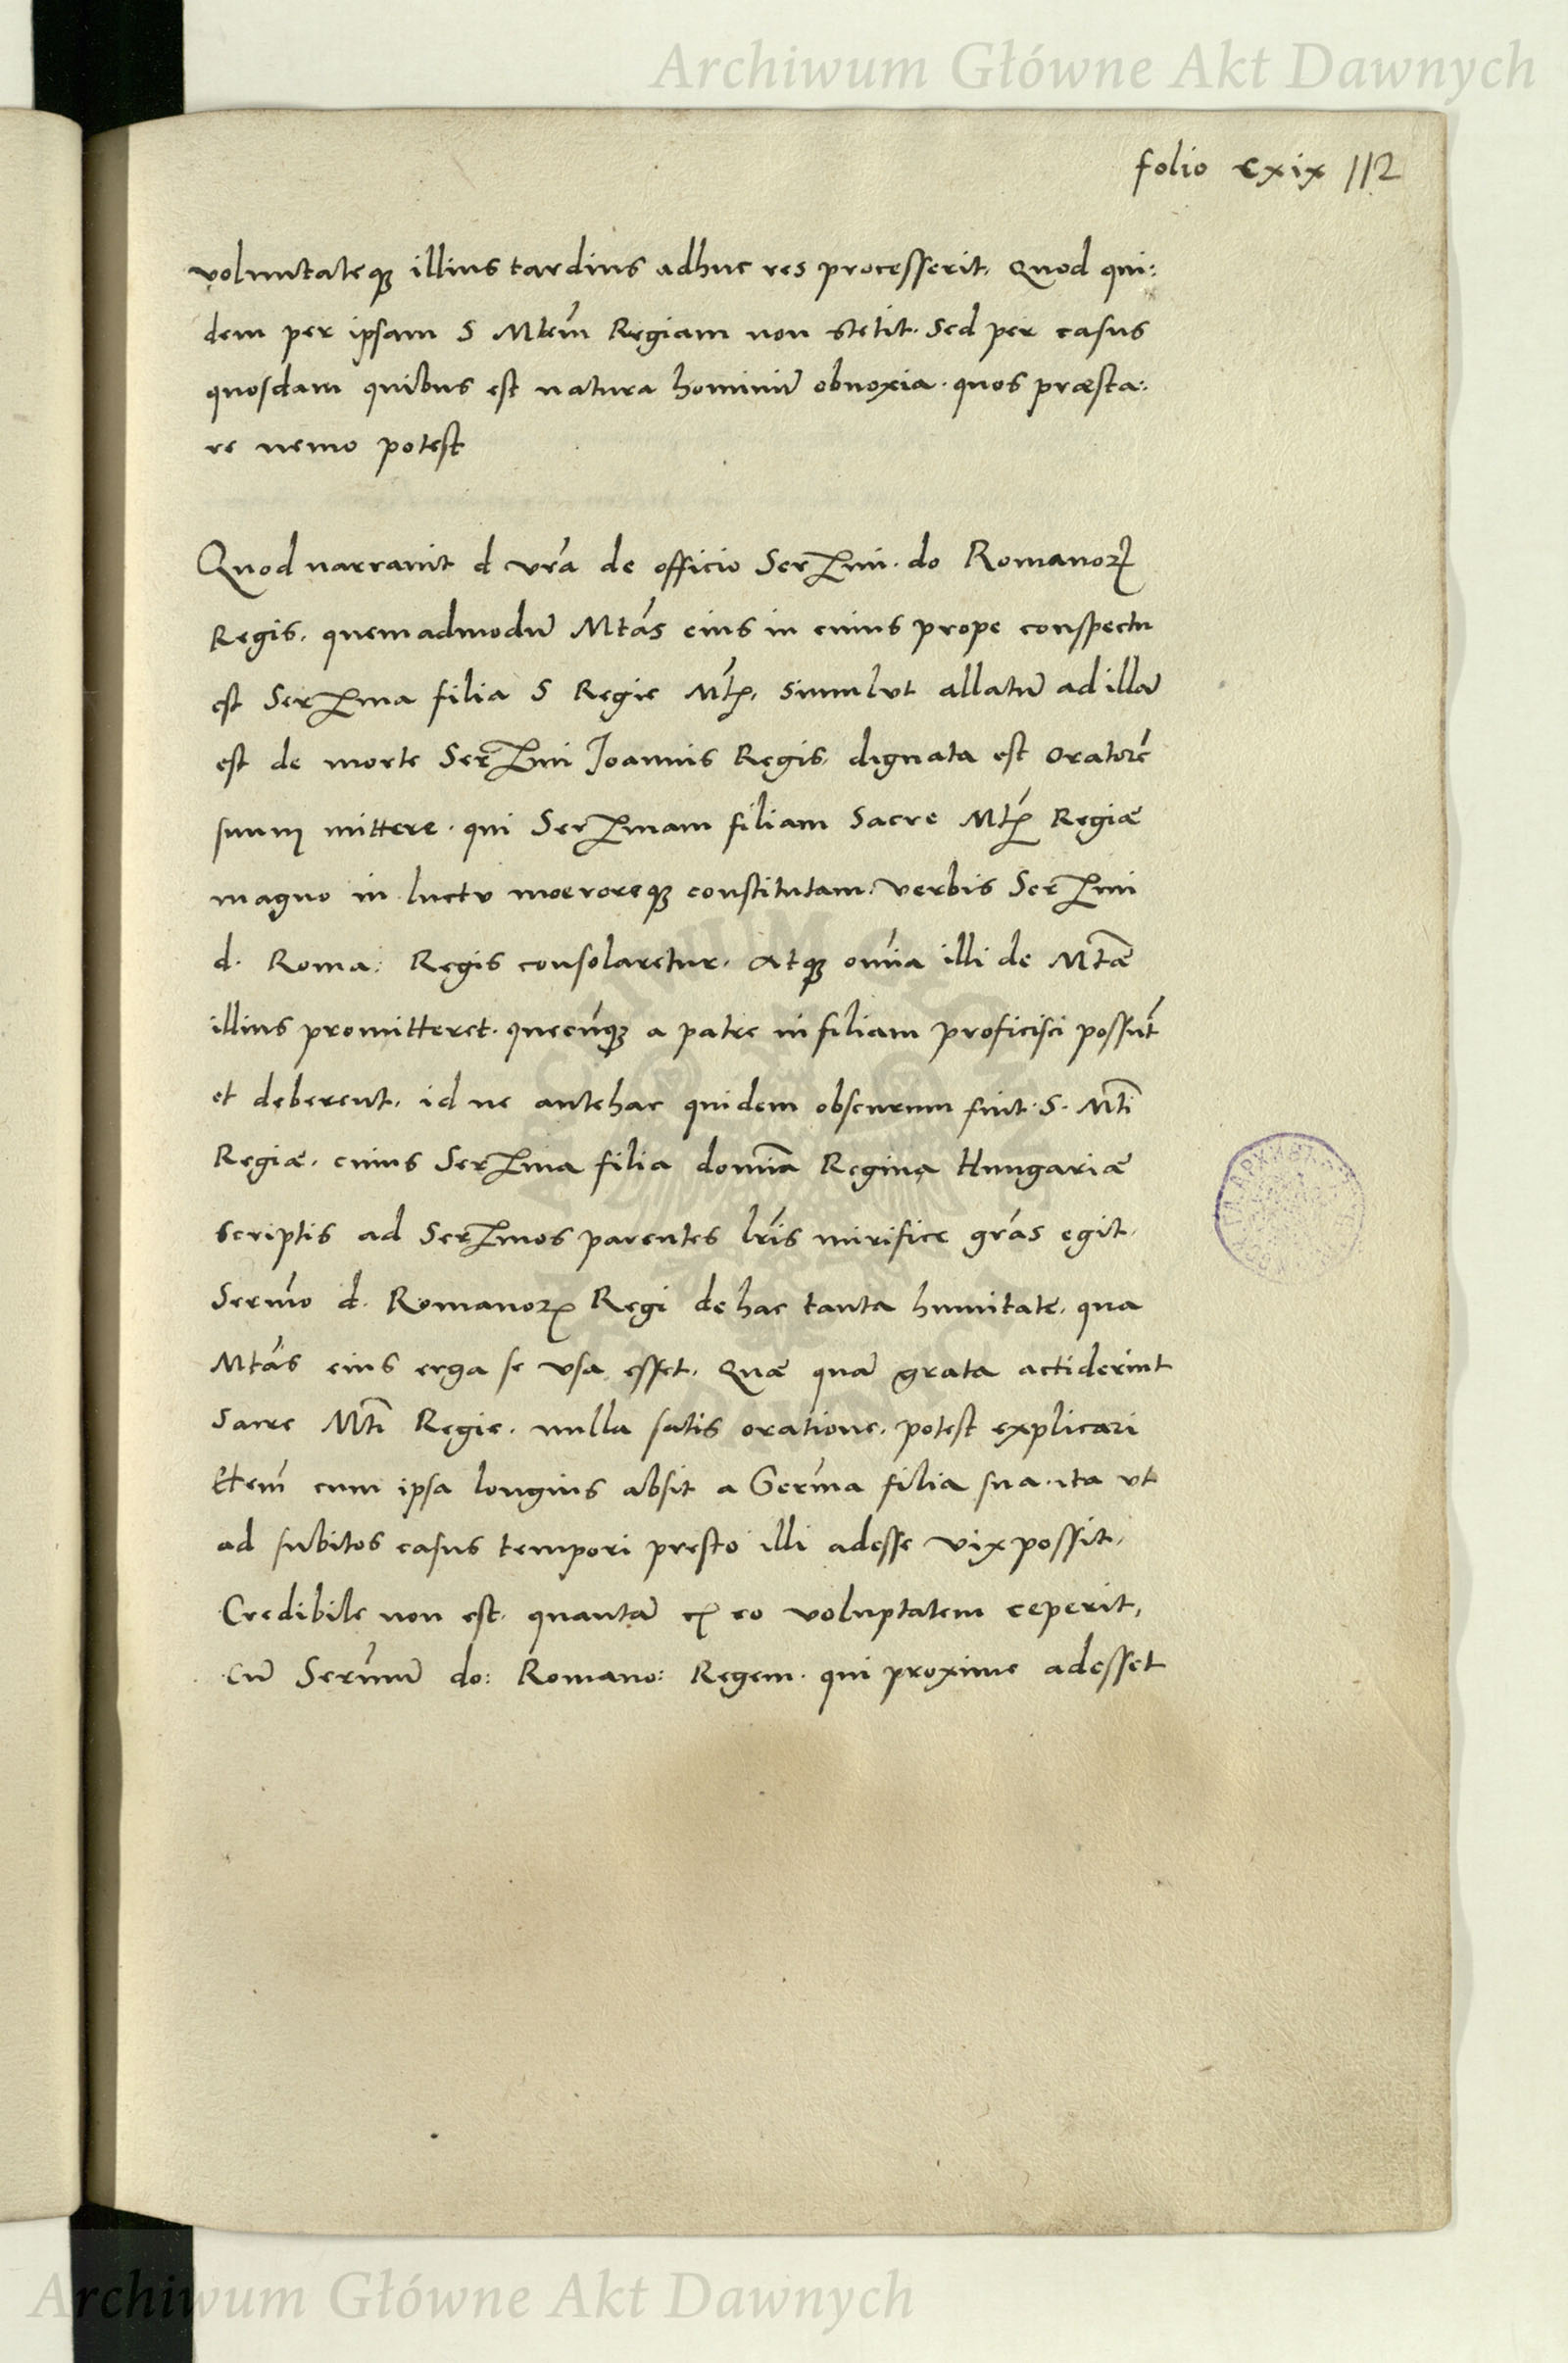 Archiwum Główne Akt Dawnych
folio cxix 112
voluntateq₃ illius tardius adhuc res processerit, Quod qui:
dem per ipsam S Mtem̃ Regiam non stetit. Sed per casus
quosdam quibus est natura hominũ obnoxia. quos præsta:
re nemo potest
Quod narravit d vrã de officio Serᵐⁱ. do Romanorꝫ
Regis. quemadmodũ Mtãs eius in cuius prope conspectu
est Serᵐᵃ filia S Regie Mtꝭ, simul vt allatũ ad illã
est de morte Serᵐⁱ Joannis Regis, dignata est oratorẽ
suum mittere. qui Serᵐᵃᵐ filiam Sacre Mtꝭ Regiæ
magno in luctu moeroreq₃ constitutam. verbis Serᵐⁱ
d. Roma: Regis consolaretur. Atq₃ om̃ia illi de Mtẽ
illius promitteret. quecũq₃ a patre in filiam proficisci possũt
et deberent, id ne antehac quidem obscurum fuit. S. Mtĩ
Regiæ. cuius Serᵐᵃ filia domĩa Regina Hungariæ
scriptis ad Serᵐᵒˢ parentes lrĩs mirifice grãs egit.
Serm̃o d. Romanorꝫ Regi de hac tanta humĩtate. qua
Mtãs eius erga se vsa esset. Quæ quã grata acciderint
Sacre Mtĩ Regie. nulla satis oratione. potest explicari
Etem̃ cum ipsa longius absit a Serm̃a filia sua. ita vt
ad subitos casus tempori presto illi adesse vix possit.
Credibile non est. quantã ex eo voluptatem ceperit,
Cũ Serm̃ũ do: Romano: Regem. qui proxime adesset
Archiwum Główne Akt Dawnych